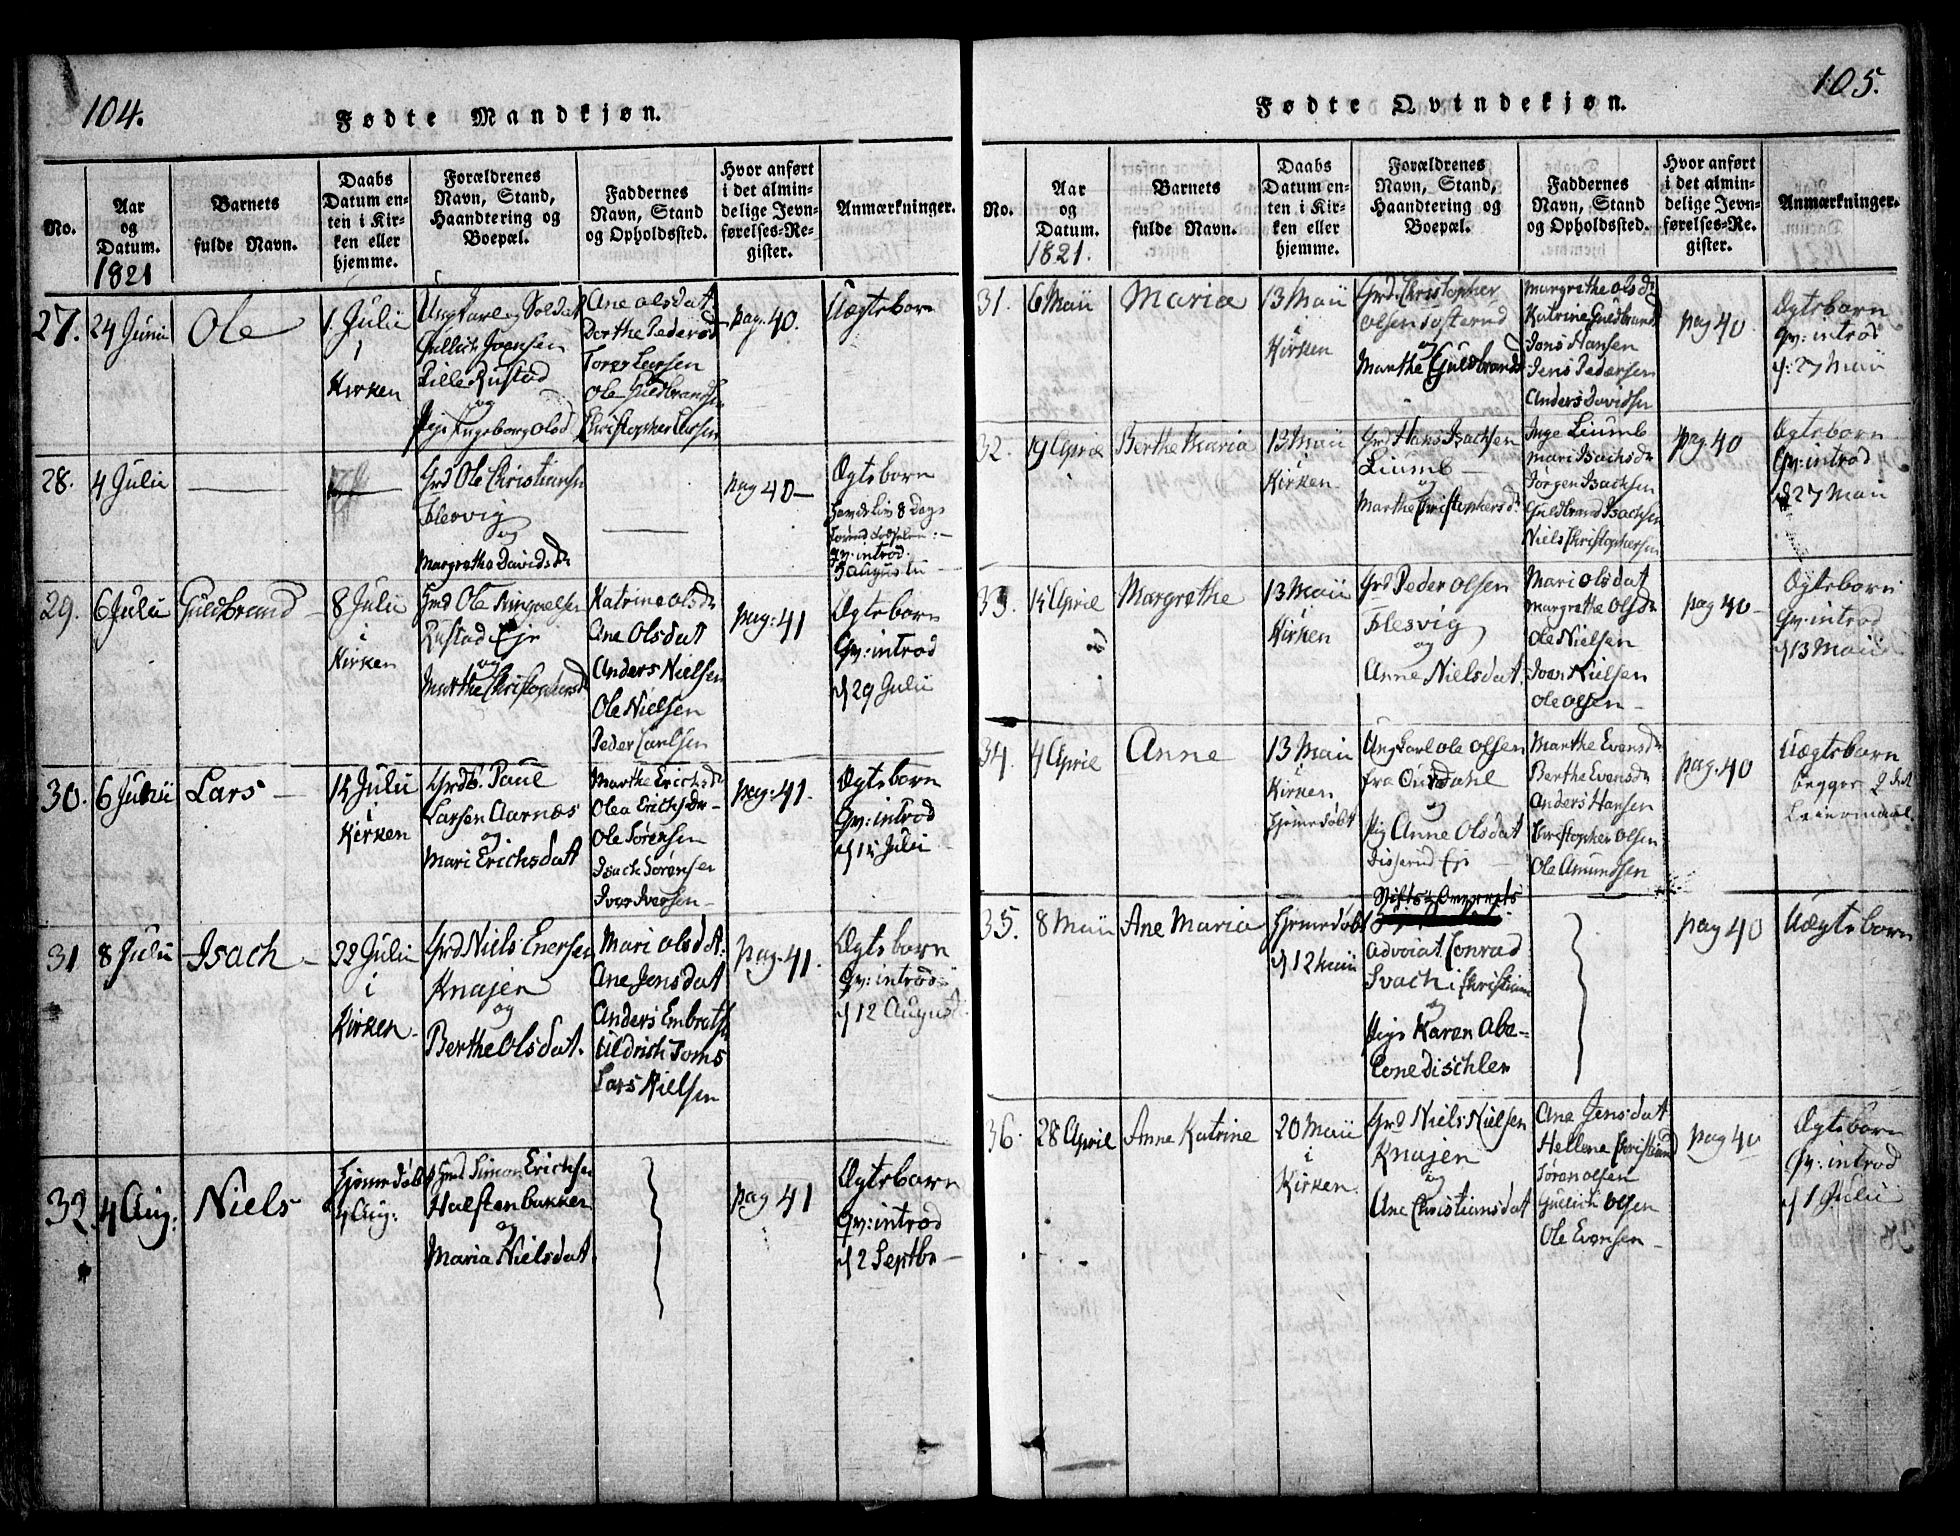 104.
Fødte Mandkjøn.
No.
Aar
og
Datum.
1821
Barnets
fulde Navn.
Daabs
Datum en-
ten i Kir-
ken eller
hjemme.
Forældrenes
Navn, Stand,
Haandtering og
Boepæl.
Faddernes
Navn, Stand
og Opholdssted.
Hvor anført
i det almin-
delige Jevn-
førelses-Re-
gister.
Anmærkninger.
27.
24 Juni
Ole
1. Julii
i
Kirken
Ungkarl og Soldat
Gullich Joensen
Lille Rustad
og
Pige Ingeborg Olsd
Ane Olsdat
Dorthe Pedersd
Larsen
Ole Guldbrandsen
Christopher Larsen
pag. 40.
Uægteborn
28.
4 Julii
Grd Ole Christiansen
Flesvig
og
Margrethe Davidsdr
pag 40 —
Ægteborn
8 Dage
Gv: introd
5 Augustii
29.
6 Julii
Guldbrand
8 Julii
i
Kirken
Ole Ringvelsen
Rustad Eje
og
Marthe Christophersd
Katrine Olsdr
Ane Olsdat
Anders Nielsen
Ole Nielsen
Peder Carlsen
pag: 41
Ægteborn
Gv: introd
d 29 Julii
30.
6 Junii
Lars —
15 Julii
i
Kirken
Grdb. Paul
Larsen Aarnæs
og
Mari Erichsdat
Marthe Erichsdr
Olea Erichsdr
Ole Sørensen
Isach Sørensen
Iver Iversen —
pag: 41.
Ægteborn
Gv: introd
d 15 Julii
31
8 Julii
Isach —
22 Julii
i
Kirken
Grd Niels Enersen
Knajen
og
Berthe Olsdat.
Mari Olsdat
Ane Jensdat
Anders Embretsen
Uldrich Toms
Lars Nielsen
pag. 41.
Ægteborn
Gv: introd
d 12 August
32.
4 Aug:
Niels
Hjemedøbt
d Aug:
Grd Simon Erichsen
Halstenbakken
og
Maria Nielsdat.
pag 41
Ægteborn
Gv: introd
d 2 Septbr —
105.
Fødte Qvindekjøn.
No.
Aar
og
Datum.
1821.
Barnets
fulde Navn.
Daabs
Datum en-
ten i Kir-
ken eller
hjemme.
Forældrenes
Navn, Stand,
Haandtering og
Boepæl.
Faddernes
Navn, Stand
og Opholdssted.
Hvor anført
i det almin-
delige Jevn-
førelses-Re-
gister.
Anmærkninger.
31.
6 Maii
Maria
13 Maii
i
Kirken
Grd: Christopher
Olsen
og
Marthe Guldbrandsd
Margrethe Olsdr
Katrine Guldbrandsd
Jens Hansen
Jens Pedersen
Anders Davidsen
pag 40
Ægteborn
Gv: introd
d: 27 Maii
32.
19 Aprill
Berthe Maria
13 Maii
i
Kirken
Grd Hans Isachsen
Liumb —
og
Marthe Christophersdr
Inge Liumb
Mari Isachsdr
Jørgen Isachsen
Guldbrand Isachsen
Niels Christophersen
pag. 40
Ægteborn
Gv: introd
d 27 Maii
33.
15 Aprill
Margrethe
13 Maii
i
Kirken
Grd Peder Olsen
Flesvig
og
Anne Nielsdat.
Mari Olsdat
Margrethe Olsdr
Ole Nielsen
Joen Nielsen
Ole Olsen —
pag 40 —
Ægteborn
Gv: introd
d 13 Maii
34.
4 Aprill
Anne
13 Maii
i
Kirken
Hjemedøbt
Ungkarl Ole Olsen
fra
og
Pig Anne Olsdat
Eje —
Marthe Evensdr
Berthe Evensdr
Anders Hansen
Christopher Olsen
Ole Amundsen
pag. 40
Uægteborn
begges 2det
Leiermaal.
35.
8 Maii
Ane Maria
Hjemedøbt
d 12 Maii
Stifts Overrets
Advocat Conrad
Svach i Christiania
og
Pige Karen Abe-
lone Dischler
pag 40
Uægteborn
36.
28 Aprill
Anne Katrine
20 Maii
i
Kirken.
Grd Niels Nielsen
Knajen
og
Ane Christiansdat
Ane Jensdat
Hellene Christiansd
Søren Olsen
Gullich Olsen
Ole Evensen —
pag 40
Ægteborn
Gv: introd
d 1 Julii